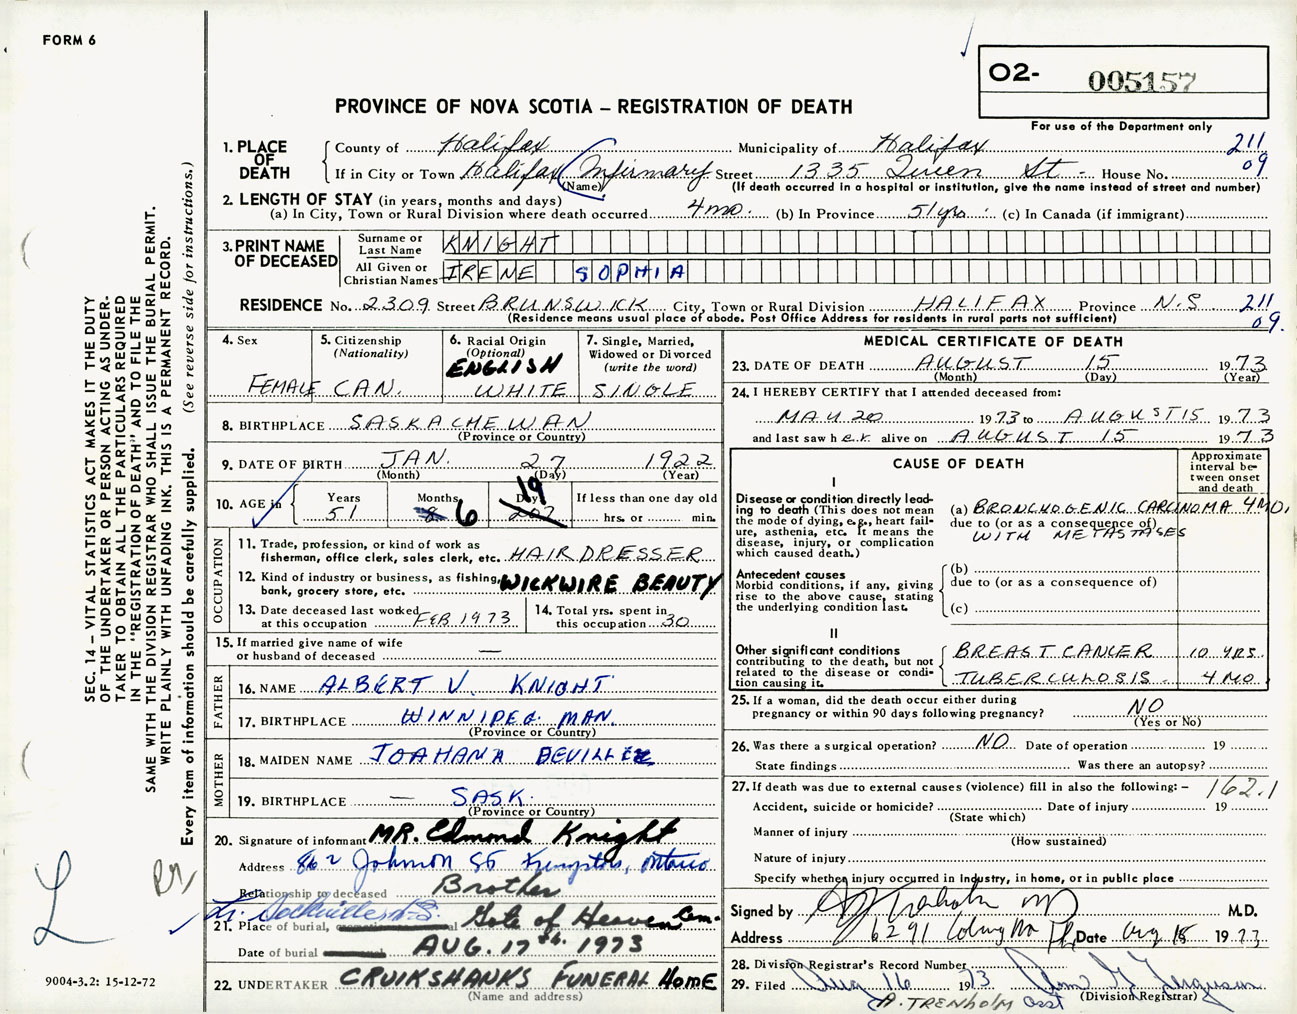 FORM 6
O2- 005157
For use of the Department only
PROVINCE OF NOVA SCOTIA – REGISTRATION OF DEATH
SEC. 14 – VITAL STATISTICS ACT MAKES IT THE DUTY
OF THE UNDERTAKER OR PERSON ACTING AS UNDER-
TAKER TO OBTAIN ALL THE PARTICULARS REQUIRED
IN THE "REGISTRATION OF DEATH" AND TO FILE THE
SAME WITH THE DIVISION REGISTRAR WHO SHALL ISSUE THE BURIAL PERMIT.
WRITE PLAINLY WITH UNFADING INK. THIS IS A PERMANENT RECORD.
Every item of information should be carefully supplied. (See reverse side for instructions.)
1. PLACE OF DEATH
County of Halifax Municipality of Halifax 211
If in City or Town Halifax Infirmary Street 1335 Queen St - House No. 09
(Name) (If death occurred in a hospital or institution, give the name instead of street and number)
2. LENGTH OF STAY (in years, months and days)
(a) In City, Town or Rural Division where death occurred 4 mo. (b) In Province 51 yrs. (c) In Canada (if immigrant)
3. PRINT NAME OF DECEASED
Surname or Last Name KNIGHT
All Given or Christian Names IRENE SOPHIA
RESIDENCE No. 2309 Street BRUNSWICK City, Town or Rural Division HALIFAX Province N.S. 211
(Residence means usual place of abode. Post Office Address for residents in rural parts not sufficient) 09.
4. Sex
FEMALE
5. Citizenship
(Nationality)
CAN.
6. Racial Origin
(Optional)
ENGLISH
WHITE
7. Single, Married,
Widowed or Divorced
(write the word)
SINGLE
8. BIRTHPLACE SASKACHEWAN
(Province or Country)
9. DATE OF BIRTH JAN. 27 1922
(Month) (Day) (Year)
10. AGE in Years 51 Months 8 6 Days 207 19 If less than one day old
hrs. or min.
OCCUPATION
11. Trade, profession, or kind of work as
fisherman, office clerk, sales clerk, etc. HAIR DRESSER
12. Kind of industry or business, as fishing,
bank, grocery store, etc. WICKWIRE BEAUTY
13. Date deceased last worked
at this occupation FEB 1973
14. Total yrs. spent in
this occupation 30
15. If married give name of wife
or husband of deceased —
FATHER
16. NAME ALBERT V. KNIGHT
17. BIRTHPLACE WINNIPEG. MAN.
(Province or Country)
MOTHER
18. MAIDEN NAME JOAHANA
19. BIRTHPLACE — SASK.
(Province or Country)
20. Signature of informant MR. Edmond Knight
Address 862 Johnson St Kingston, Ontario
Relationship to deceased Brother
Lr. Sackville N.S.
21. Place of burial, Gate of Heaven Cem.
Date of burial AUG. 17th. 1973
22. UNDERTAKER CRUIKSHANKS FUNERAL HOME
(Name and address)
MEDICAL CERTIFICATE OF DEATH
23. DATE OF DEATH AUGUST 15 1973
(Month) (Day) (Year)
24. I HEREBY CERTIFY that I attended deceased from:
MAY 20 1973 to AUGUST 15 1973
and last saw her alive on AUGUST 15 1973
CAUSE OF DEATH
Approximate
interval be-
tween onset
and death
I
Disease or condition directly lead-
ing to death (This does not mean
the mode of dying, e.g., heart fail-
ure, asthenia, etc. It means the
disease, injury, or complication
which caused death.)
(a) BRONCHOGENIC CARCINOMA 4 MO.
due to (or as a consequence of)
WITH METASTASES
Antecedent causes
Morbid conditions, if any, giving
rise to the above cause, stating
the underlying condition last.
(b)
due to (or as a consequence of)
(c)
II
Other significant conditions
contributing to the death, but not
related to the disease or condi-
tion causing it.
BREAST CANCER 10 YRS.
TUBERCULOSIS 4 MO.
25. If a woman, did the death occur either during
pregnancy or within 90 days following pregnancy? NO
(Yes or No)
26. Was there a surgical operation? NO. Date of operation 19
State findings Was there an autopsy?
27. If death was due to external causes (violence) fill in also the following: – 162.1
Accident, suicide or homicide? Date of injury 19
(State which)
Manner of injury
(How sustained)
Nature of injury
Specify whether injury occurred in industry, in home, or in public place
Signed by M.D.
Address 6291 Date Aug 15 1973
28. Division Registrar's Record Number
29. Filed Aug 16 1973 Ferguson
(Division Registrar)
A. TRENHOLM Asst
9004-3.2: 15-12-72